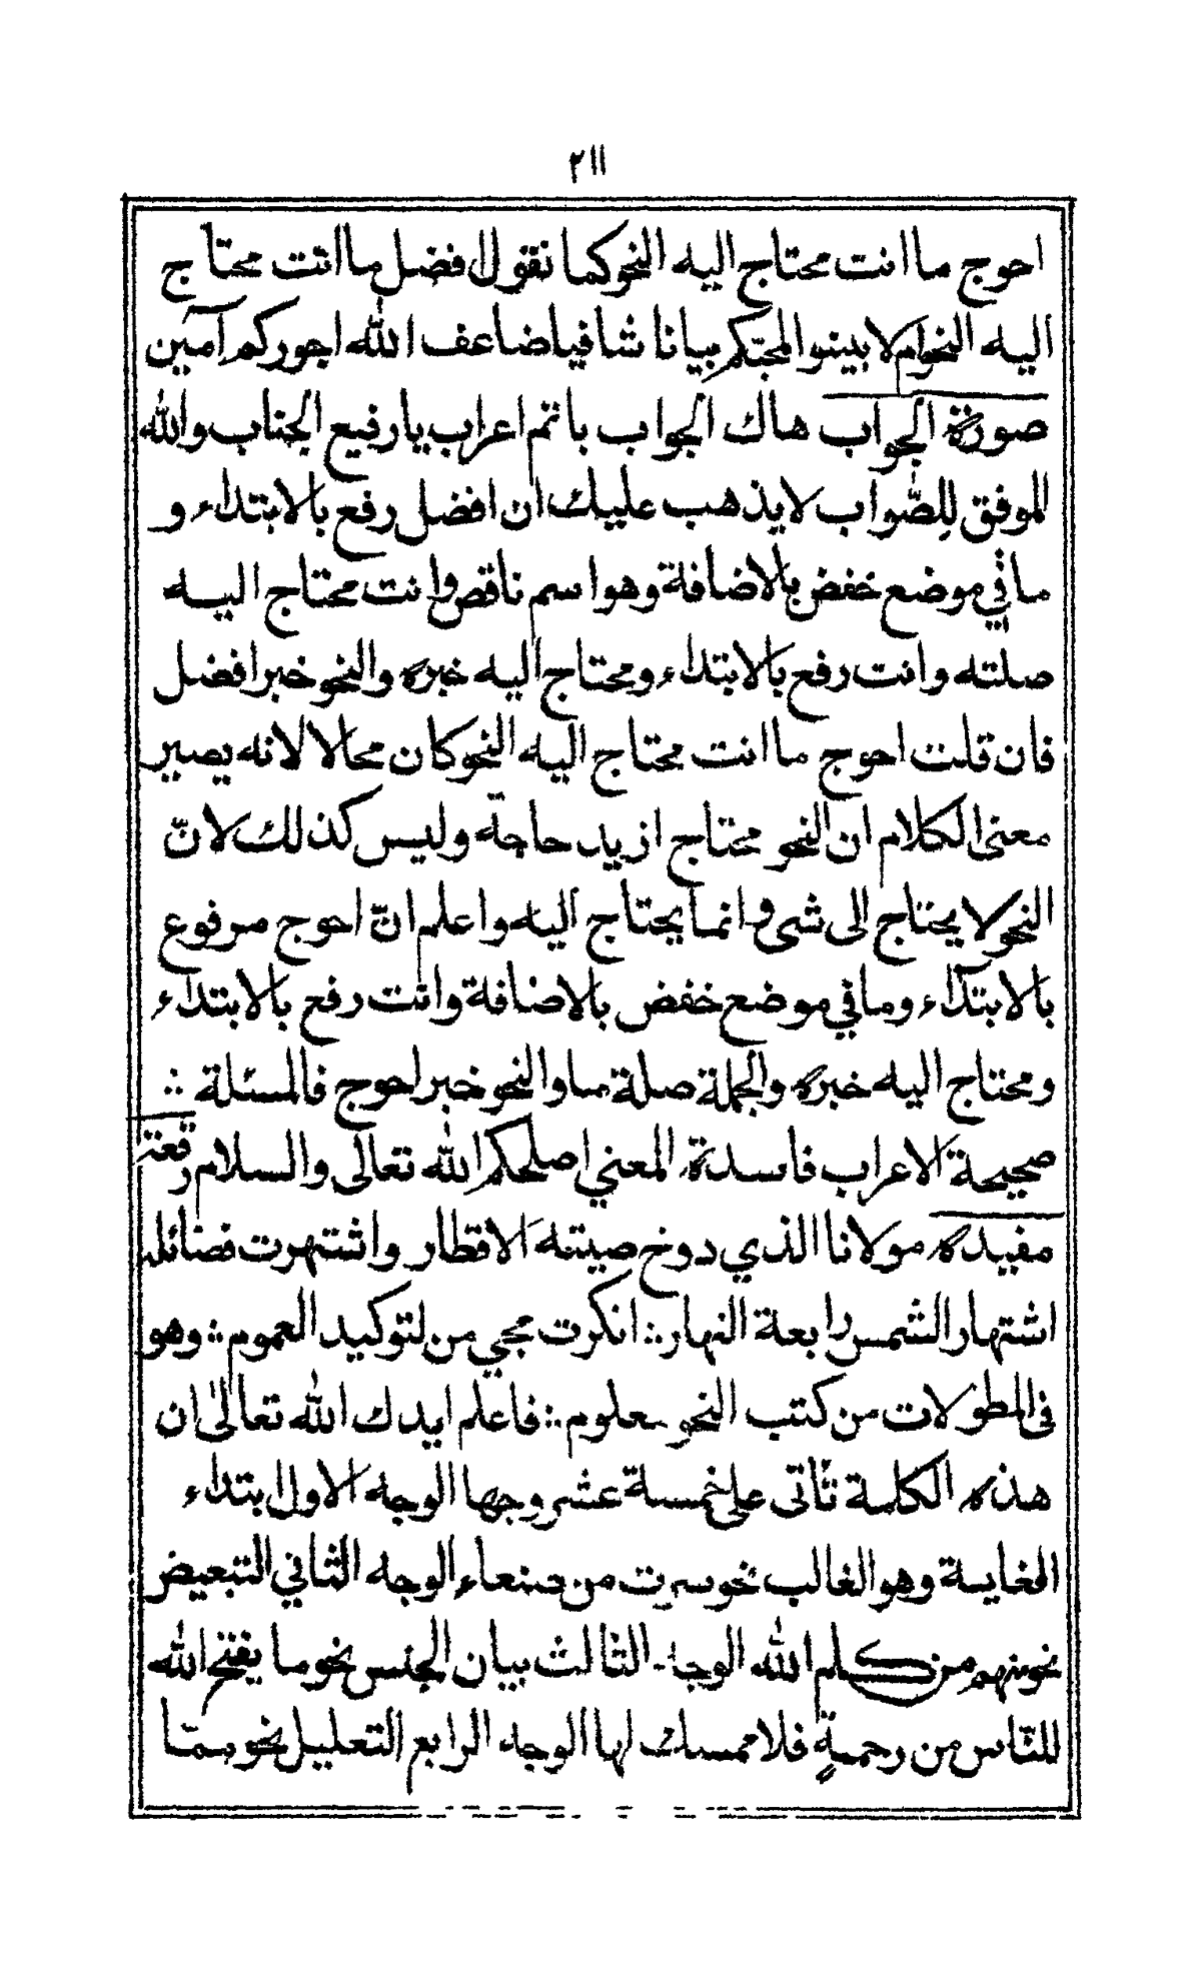 ٢١١
احوج ما انت محتاج اليه النحو كما نقول افضل ما انت محتاج
اليه النحو ام لا بينوا لمحبّكم بيانا شافيا ضاعف الله اجوركم آمين
صورة الجواب هاك الجواب باتم اعراب يا رفيع الجناب والله
الموفق للصّواب لا يذهب عليك ان افضل رفع بالابتداء و
ما في موضع خفض بالاضافة وهو اسم ناقص وانت محتاج اليه
صلته وانت رفع بالابتداء ومحتاج اليه خبره والنحو خبر افضل
فان قلت احوج ما انت محتاج اليه النحو كان محالا لانه يصير
معنى الكلام ان النحو محتاج ازيد حاجة وليس كذلك لانّ
النحو لا يحتاج الى شى وانما يحتاج اليه واعلم انّ احوج مرفوع
بالابتداء وما في موضع خفض بالاضافة وانت رفع بالابتداء
ومحتاج اليه خبره والجملة صلة ما والنحو خبر احوج فالمسئلة ؞
صحيحة الاعراب فاسدة المعني اصلحكم الله تعالى والسلام رقعة
مفيده مولانا الذي دوخ صيته الاقطار واشتهرت فضائله
اشتهار الشمس رابعة النهار ؞ انكرت مجي من لتوكيد العموم ؞ وهو
فى المطولات من كتب النحو معلوم ؞ فاعلم ايدك الله تعالىٰ ان
هذه الكلمة تأتى على خمسة عشر وجها الوجه الاول ابتداء
الغاية وهو الغالب نحو سرت من صنعاء الوجه الثاني التبعيض
نحو منهم من كلم الله الوجه الثالث بيان الجنس نحو ما يفتح الله
للنّاس من رحمةٍ فلا ممسك لها الوجه الرابع التعليل نحو ممّا